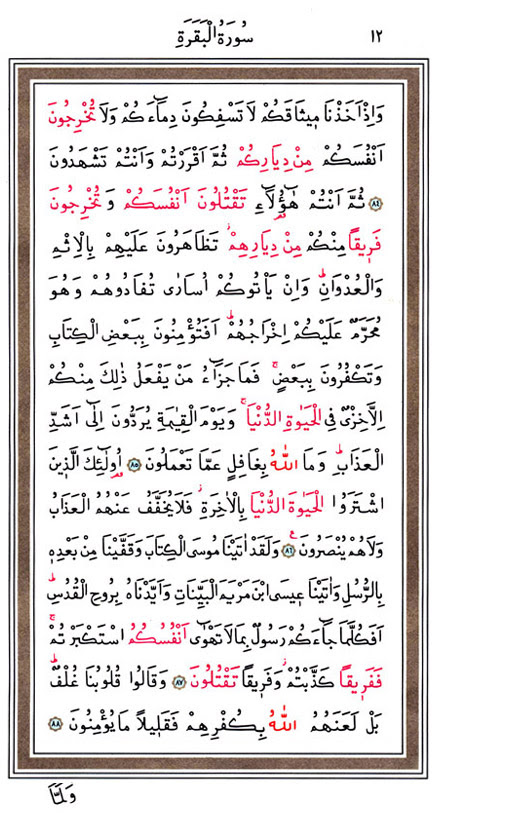 ١٢ سُورَةُ الْبَقَرَةِ
وَاِذْ اَخَذْنَا مِيثَاقَكُمْ لَا تَسْفِكُونَ دِمَٓاءَكُمْ وَلَا تُخْرِجُونَ
اَنْفُسَكُمْ مِنْ دِيَارِكُمْ ثُمَّ اَقْرَرْتُمْ وَاَنْتُمْ تَشْهَدُونَ
﴿٨٤﴾ ثُمَّ اَنْتُمْ هٰٓؤُ۬لَٓاءِ تَقْتُلُونَ اَنْفُسَكُمْ وَتُخْرِجُونَ
فَرِيقًا مِنْكُمْ مِنْ دِيَارِهِمْۘ تَظَاهَرُونَ عَلَيْهِمْ بِالْاِثْمِ
وَالْعُدْوَانِۜ وَاِنْ يَأْتُوكُمْ اُسَارٰى تُفَادُوهُمْ وَهُوَ
مُحَرَّمٌ عَلَيْكُمْ اِخْرَاجُهُمْۜ اَفَتُؤْمِنُونَ بِبَعْضِ الْكِتَابِ
وَتَكْفُرُونَ بِبَعْضٍۚ فَمَا جَزَٓاءُ مَنْ يَفْعَلُ ذٰلِكَ مِنْكُمْ
اِلَّا خِزْيٌ فِي الْحَيٰوةِ الدُّنْيَاۚ وَيَوْمَ الْقِيٰمَةِ يُرَدُّونَ اِلٰٓى اَشَدِّ
الْعَذَابِۜ وَمَا اللّٰهُ بِغَافِلٍ عَمَّا تَعْمَلُونَ ﴿٨٥﴾ اُو۬لٰٓئِكَ الَّذِينَ
اشْتَرَوُا الْحَيٰوةَ الدُّنْيَا بِالْاٰخِرَةِۘ فَلَا يُخَفَّفُ عَنْهُمُ الْعَذَابُ
وَلَا هُمْ يُنْصَرُونَ۟ ﴿٨٦﴾ وَلَقَدْ اٰتَيْنَا مُوسَى الْكِتَابَ وَقَفَّيْنَا مِنْ بَعْدِهِ
بِالرُّسُلِ وَاٰتَيْنَا عِيسَى ابْنَ مَرْيَمَ الْبَيِّنَاتِ وَاَيَّدْنَاهُ بِرُوحِ الْقُدُسِۜ
اَفَكُلَّمَا جَٓاءَكُمْ رَسُولٌ بِمَا لَا تَهْوٰٓى اَنْفُسُكُمُ اسْتَكْبَرْتُمْۚ
فَفَرِيقًا كَذَّبْتُمْۘ وَفَرِيقًا تَقْتُلُونَ ﴿٨٧﴾ وَقَالُوا قُلُوبُنَا غُلْفٌۜ
بَلْ لَعَنَهُمُ اللّٰهُ بِكُفْرِهِمْ فَقَلِيلًا مَا يُؤْمِنُونَ ﴿٨٨﴾
وَلَمَّا